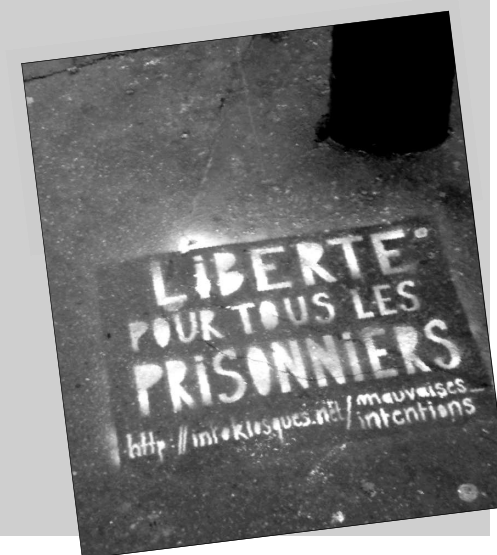 LiBERTE
POUR TOUS LES
PRiSONNiERS
http://infokiosques.net/mauvaises_
intentions